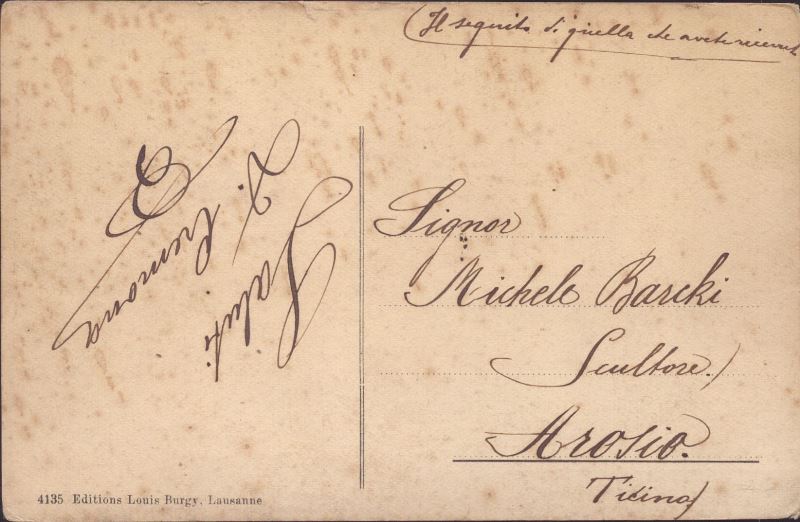 (Il seguito di quella che avete ricevuta
Saluti
D. Cremona
Signor
Michele Barcki
Scultore.)
Arosio.
Ticino)
4135 Editions Louis Burgy, Lausanne